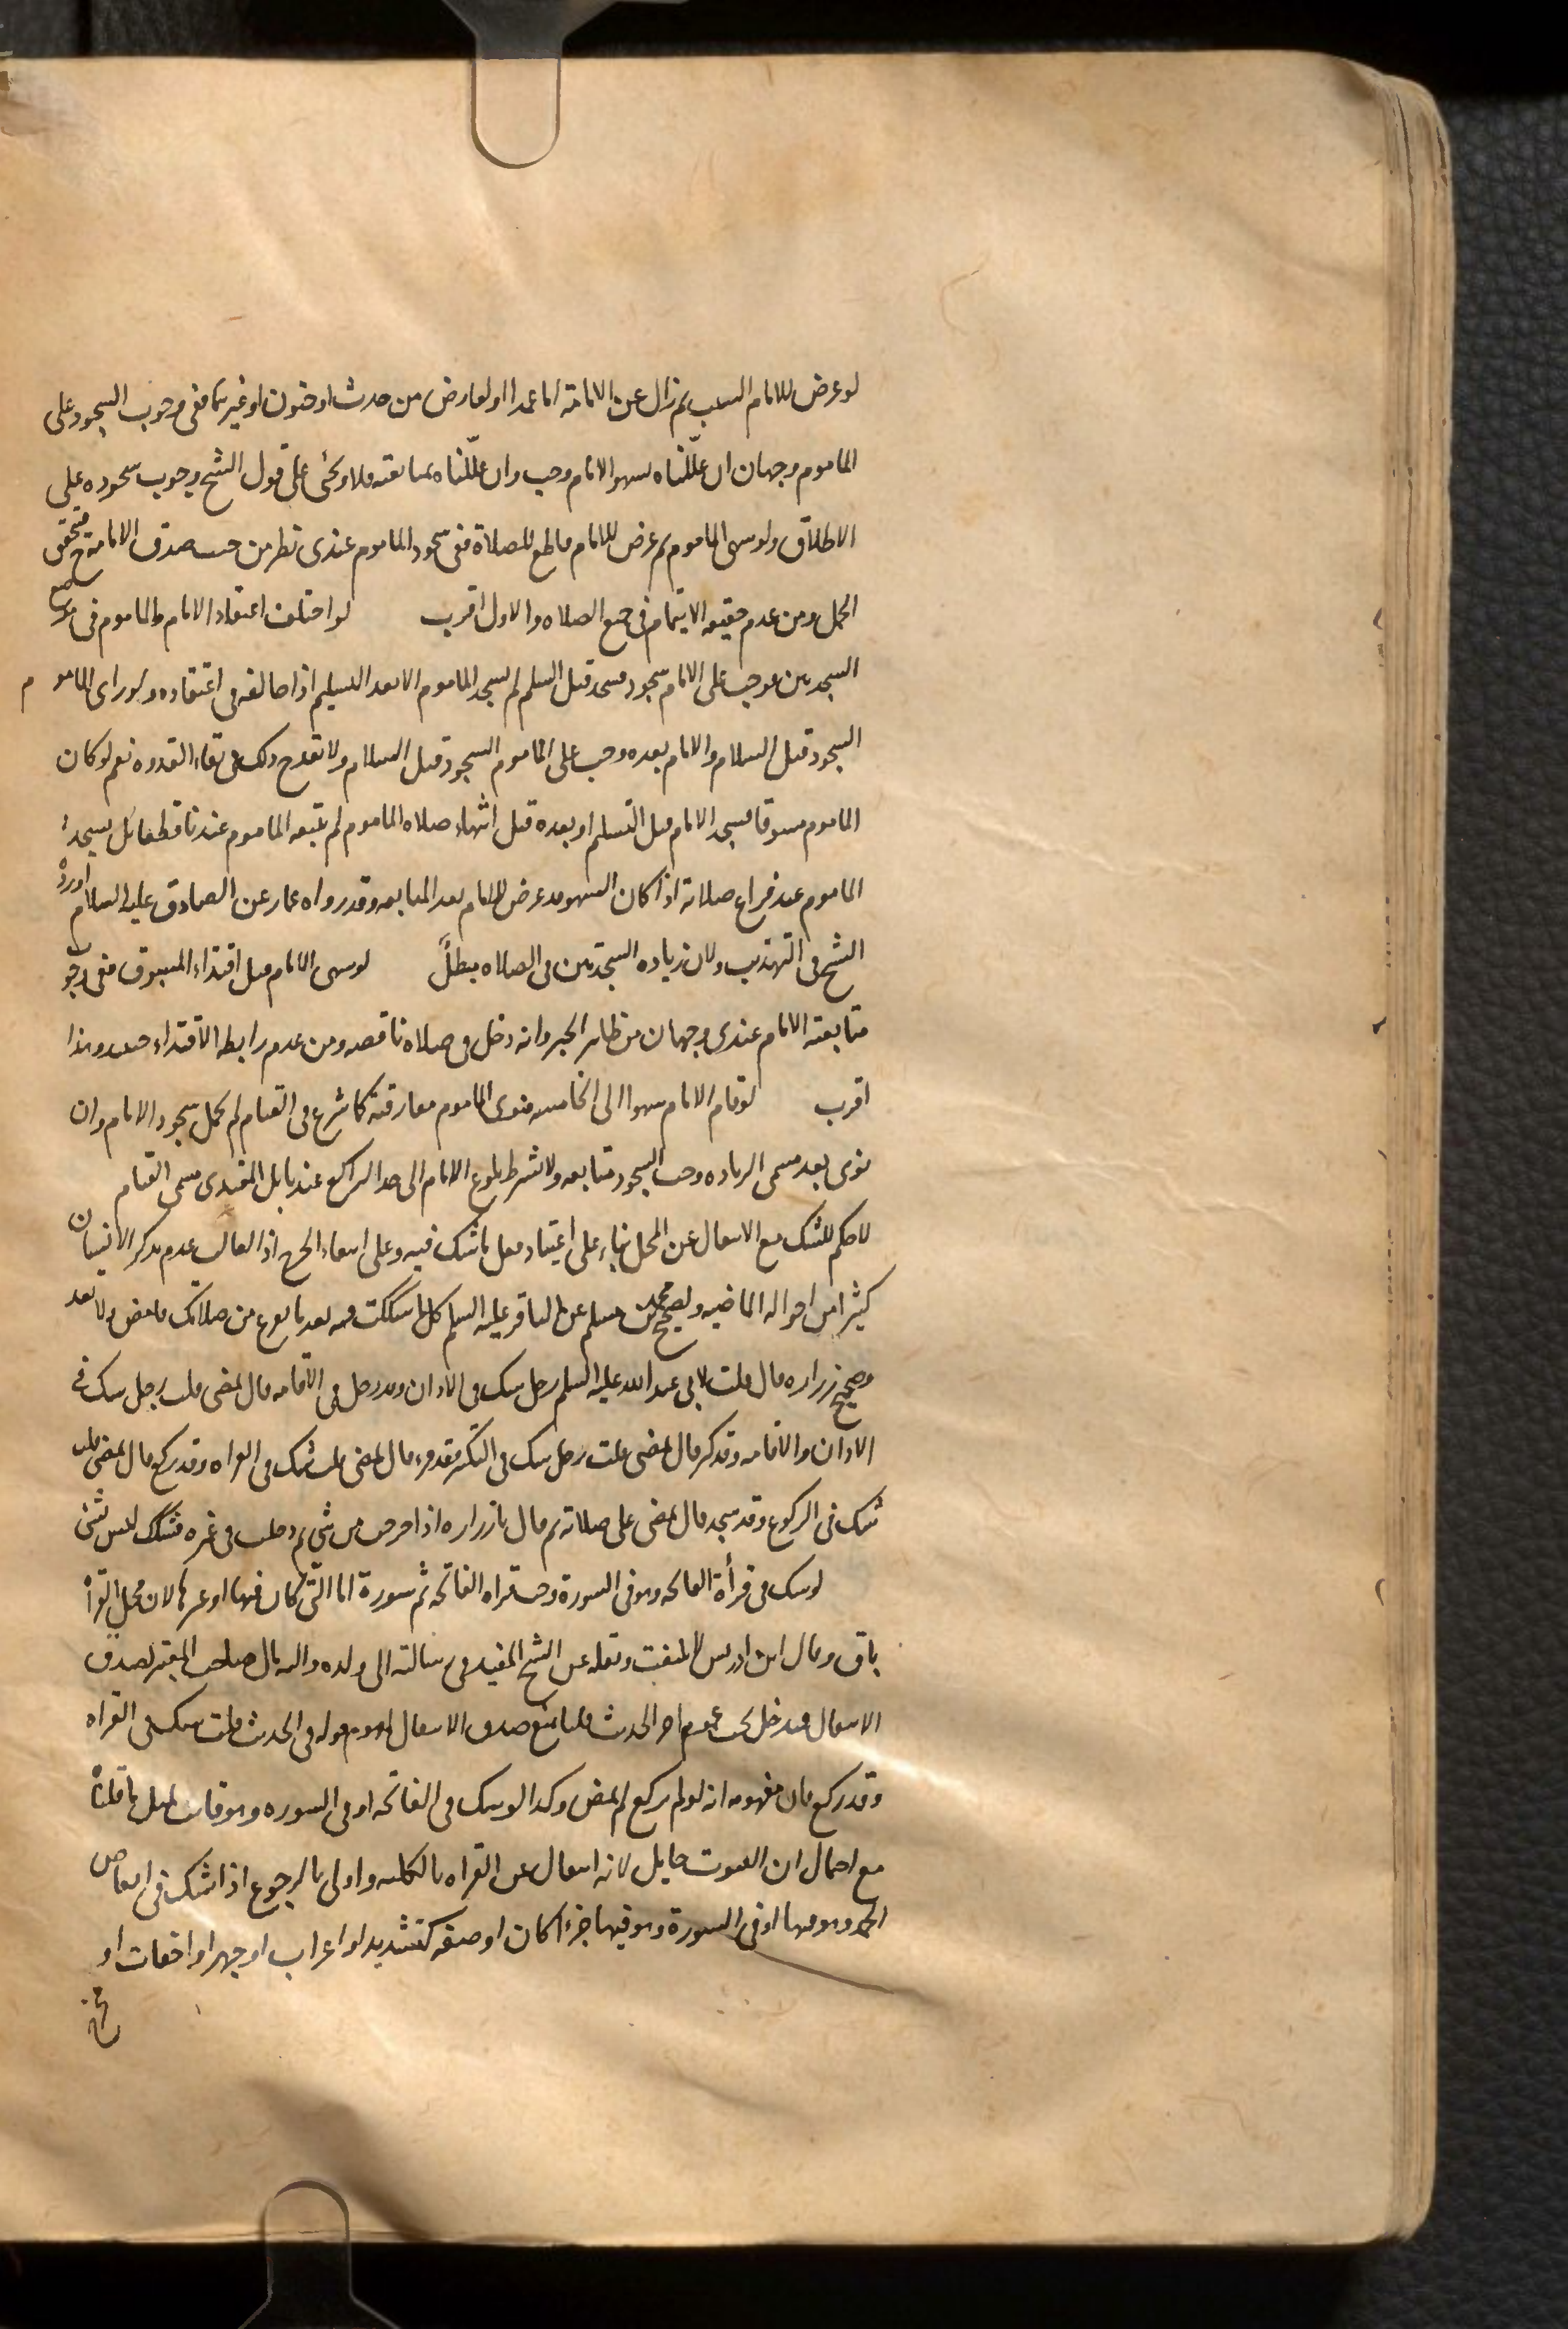 لو عرض للامام السبب ثم زال عن الامامة اما عمدا او لعارض من حدث او جنون او غيرهما ففى وجوب السجود على
الماموم وجهان ان علّلناه بسهو الامام وجب وان علّلناه بمتابعته فلا ويجئ على قول الشيخ وجوب سجوده على
الاطلاق ولو سهى الماموم ثم عرض للامام قاطع للصلاة ففى سجود الماموم عندى نظر من حيث صدق الامامة فتحقق
الحمل ومن عدم حقيقه الايتمام فى جميع الصلاه والاول اقرب لو اختلف اعتقاد الامام والماموم فى موضع
السجدتين فوجب على الامام سجود فسجد قبل السلم لم يسجد الماموم الا بعد التسليم اذا خالفه فى اعتقاده ولو راى الماموم
السجود قبل السلام والامام بعده وجب على الماموم السجود قبل السلام ولا يقدح ذلك فى بقاء القدوه نعم لو كان
الماموم مسبوقا فسجد الامام قبل التسليم او بعده قبل انتهاء صلاه الماموم لم يتبعه الماموم عندنا قطعا بل يسجد
الماموم عند فراغ صلاته اذا كان السهو قد عرض للامام بعد المتابعه وقد رواه عمار عن الصادق عليه السلام اورده
الشيخ فى التهذيب ولان زياده السجدتين فى الصلاه مبطل لو سهى الامام قبل اقتداء المسبوق ففى وجوب
متابعته الامام عندى وجهان من ظاهر الخبر وانه دخل فى صلاه ناقصه ومن عدم رابطه الاقتداء حينئذ وهذا
اقرب لو قام الامام سهوا الى الخامسه فنوى الماموم مفارقته كما شرع فى القيام لم يحمل سجود الامام وان
نوى بعد مسمى الزياده وجب السجود متابعه ولا يشترط بلوغ الامام الى حد الراكع عندنا بل المقتدى مسمى القيام
لا حكم للشك مع الانتقال عن المحل بناء على اعتياد فعل ما شك فيه وعلى انتفاء الحرج اذ الغالب عدم تذكر الانسان
كثيرا من احواله الماضيه ولصحيح محمد بن مسلم عن الباقر عليه السلم كل ما شككت فيه بعد ما تفرغ من صلاتك فامض ولا تعد
وصحيح زراره قال قلت لابى عبد الله عليه السلم رجل شك فى الاذان وقد دخل فى الاقامه قال يمضى قلت رجل شك فى
الاذان والاقامه وقد كبر قال يمضى قلت رجل شك فى التكبير وقد قرء قال يمضى قلت شك فى القراه وقد ركع قال يمضى قلت
شك فى الركوع وقد سجد قال يمضى على صلاته ثم قال يا زراره اذا خرجت من شئ ثم دخلت فى غيره فشكك ليس بشئ
لو شك فى قرأة الفاتحه وهو فى السورة وجب قراه الفاتحه ثم سورة اما التى كان فيها او غيرها لان محل القراة
باق وقال ابن ادريس لا يلتفت ونقله عن الشيخ المفيد فى رسالته الى ولده واليه مال صاحب المعتبر لصدق
الانتقال فيدخل تحت عموم اخر الحديث قلنا نمنع صدق الانتقال لعموم قوله فى الحديث قلت شك فى القراه
وقد ركع فان مفهومه انه لو لم يركع لم يمض وكذا لو شك فى الفاتحه او فى السوره وهو قانت لمثل ما قلناه
مع احتمال ان القنوت حايل لانه انتقال عن القراه بالكليه واولى بالرجوع اذا شك فى ابعاض
الحمد وهو فيها او فى السورة وهو فيها جزءا كان او صفه كتشديد او اعراب او جهر او اخفات او